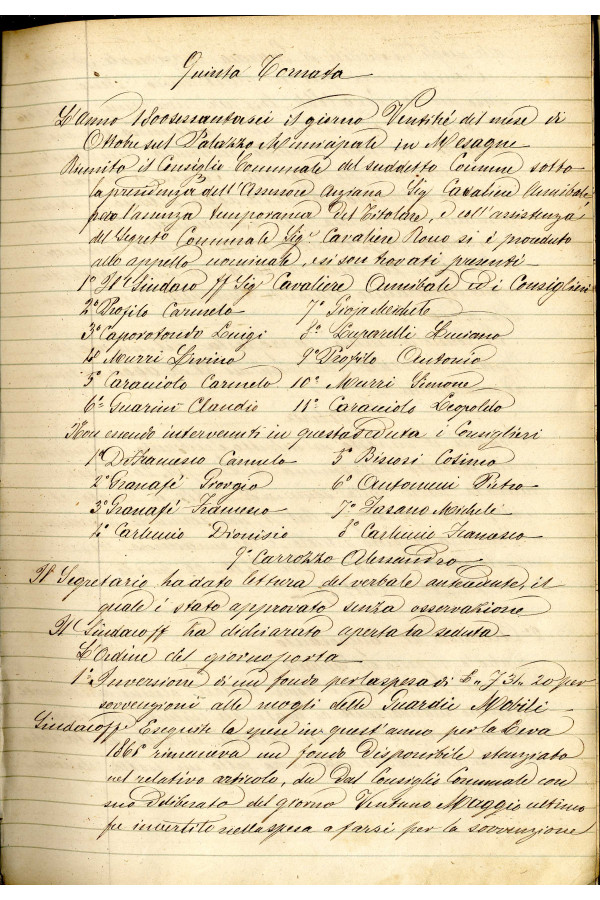 Quinta Tornata
L'Anno 1800sessantasei il giorno Ventitré del mese di
Ottobre sul Palazzo Municipale in Mesagne
Riunito il Consiglio Comunale del suddetto Comune sotto
la presidenza dell'Assessore anziano Sig Cavaliere Annibale
per l'assenza temporanea del Titolare, e coll'assistenza
del Segreto Comunale Sigr Cavaliere Rono si è proceduto
allo appello nominale, e si son trovati presenti
1° Il Sindaco ff Sig Cavaliere Annibale ed i Consiglieri
2° Profilo Carmelo 7° Gioja Michele
3° Caporotondo Luigi 8° Luparelli Luciano
4° Murri Ervino 9° Profilo Antonio
5° Caraciolo Carmelo 10° Murri Simone
6° Guarini Claudio 11° Caraciolo Leopoldo
Non essendo intervenuti in questa seduta i Consiglieri
1° De Francesco Carmelo 5° Biscosi Cosimo
2° Granafé Giorgio 6° Antonucci Pietro
3° Granafé Francesco 7° Fasano Michele
4° Carluccio Dionisio 8° Carluccio Francesco
9° Carrozzo Alessandro
Il Segretario ha dato lettura del verbale antecedente, il
quale è stato approvato senza osservazione
Il Sindaco ff ha dichiarato aperta la seduta
L'Ordine del giorno porta
1° Inversione di un fondo per la spesa di 20 per
sovvenzioni alle mogli delle Guardie Mobili
Sindaco ff: Eseguite le spese in quest'anno per la Leva
rimaneva un fondo disponibile stanziato
nel relativo articolo, che dal Consiglio Comunale con
suo deliberato del giorno Ventuno Maggio ultimo
fu invertito nella spesa a farsi per la sovvenzione